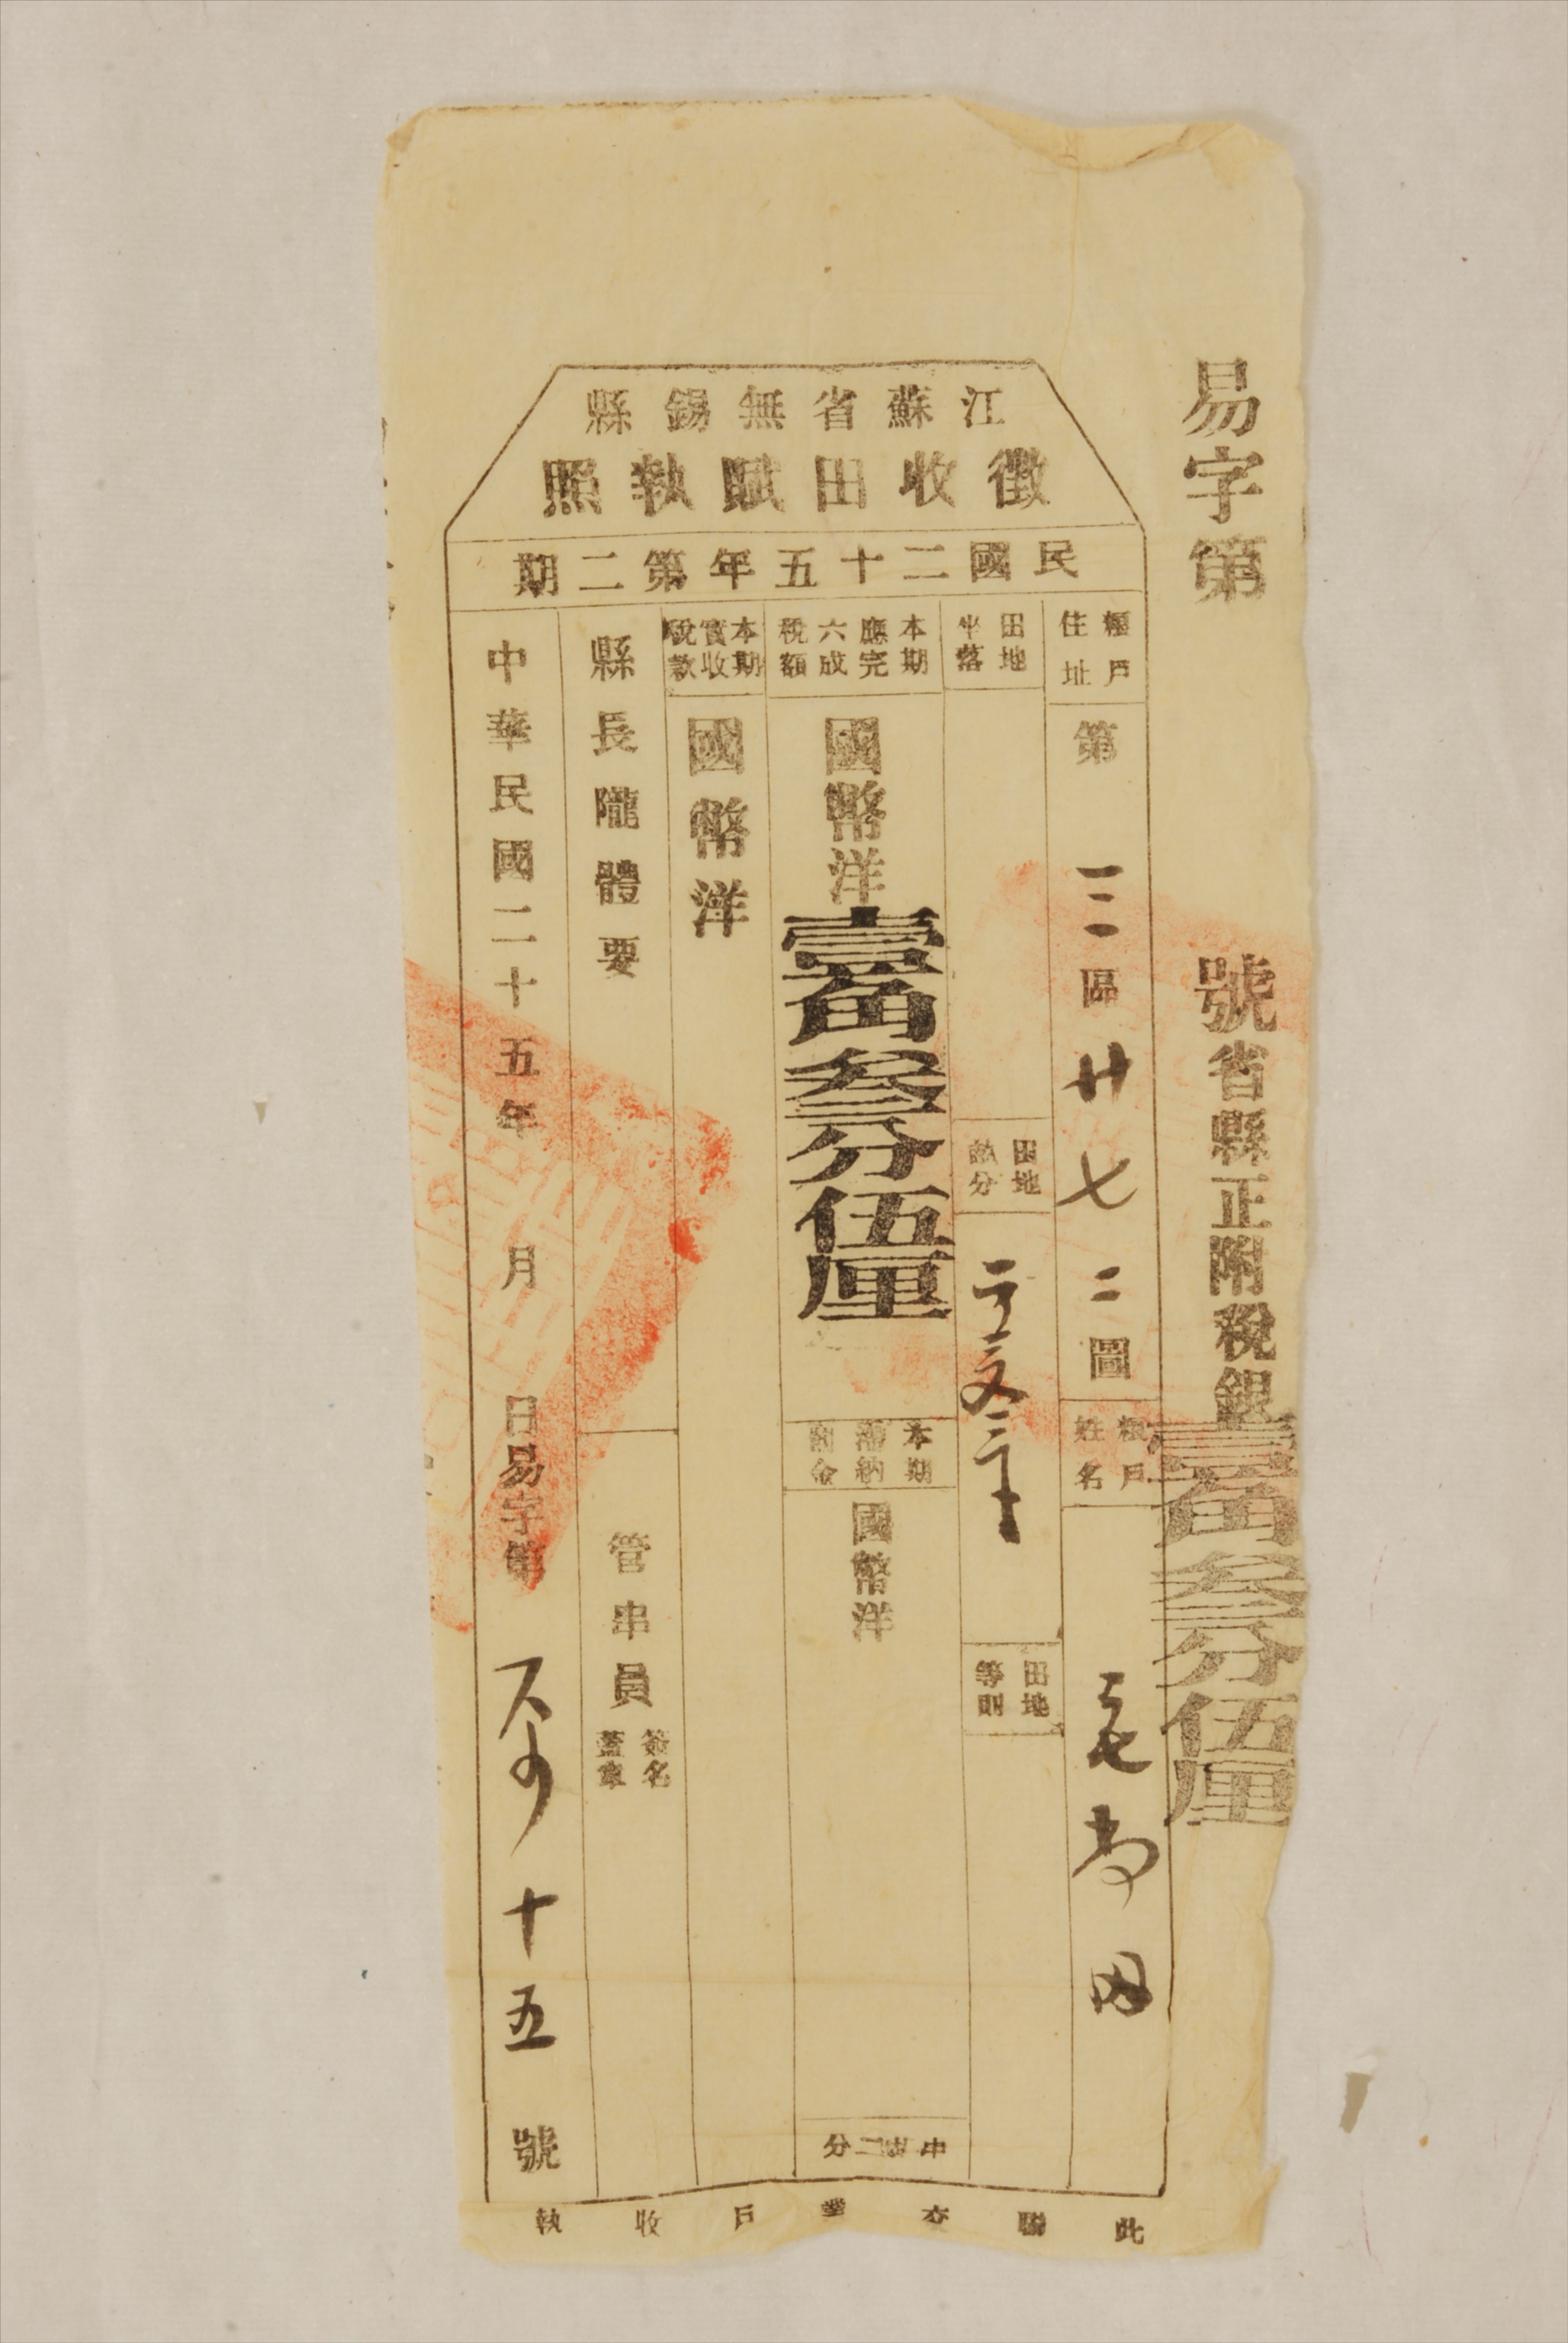 易字第 號省縣正附稅銀壹角叁分伍厘
江蘇省無錫縣
徵收田賦執照
民國二十五年第二期
糧戶住址
第三區廿七二圖
糧戶姓名
田地坐落
田地畝分
田地等則
本期應完六成稅額
國幣洋壹角叁分伍厘
本期滯納罰金
國幣洋
串費二分
本期實收稅款
國幣洋
縣長隴體要
管串員
簽名蓋章
中華民國二十五年 月 日易字第 十五號
此聯交業戶收執